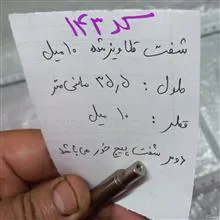 کد ۱۴۳
شفت قلاویز شده ۱۰ میل
طول : ۳۵٫۵ میلی متر
قطر : ۱۰ میل
دو سر شفت پیچ خور می باشد